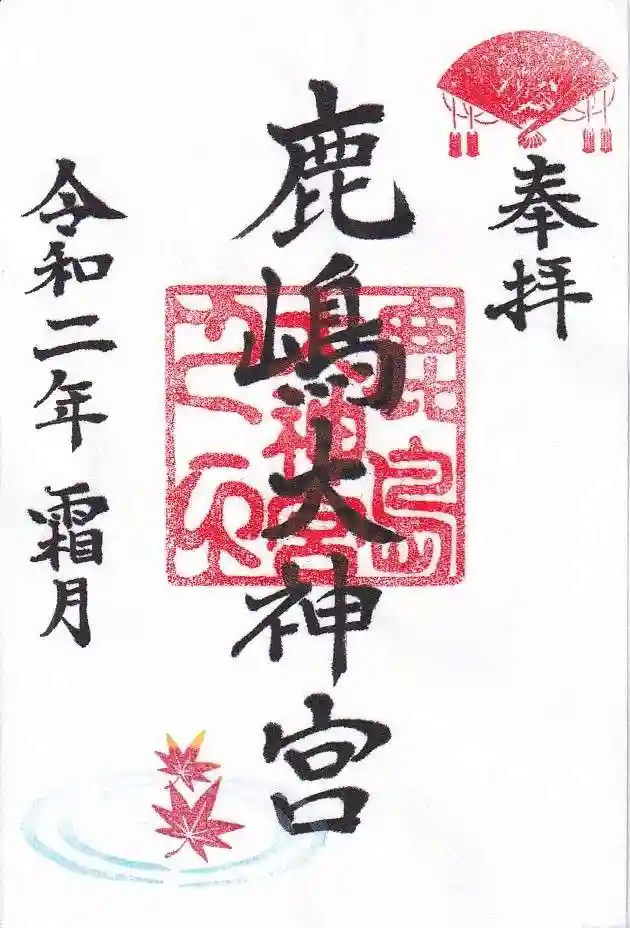 奉拝
鹿嶋大神宮
令和二年 霜月